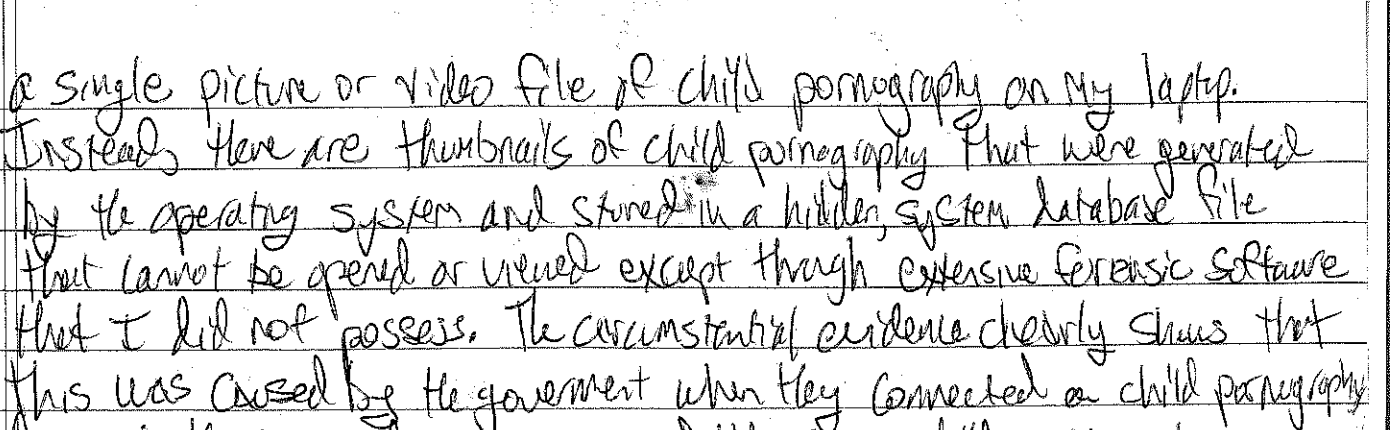 a single picture or video file of child pornography on my laptop.
Instead, there are thumbnails of child pornography that were generated
by the operating system and stored in a hidden, system database file
that cannot be opened or viewed except through extensive forensic software
that I did not possess. The circumstantial evidence clearly shows that
this was caused by the goverment when they connected a child pornography